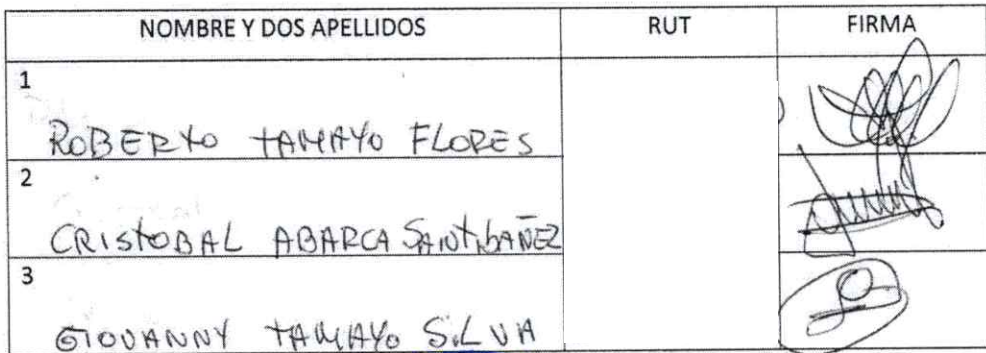 NOMBRE Y DOS APELLIDOS RUT FIRMA
1
ROBERTO TAMAYO FLORES
2
CRISTOBAL ABARCA SANTIBAÑEZ
3
GIOVANNY TAMAYO SILVA